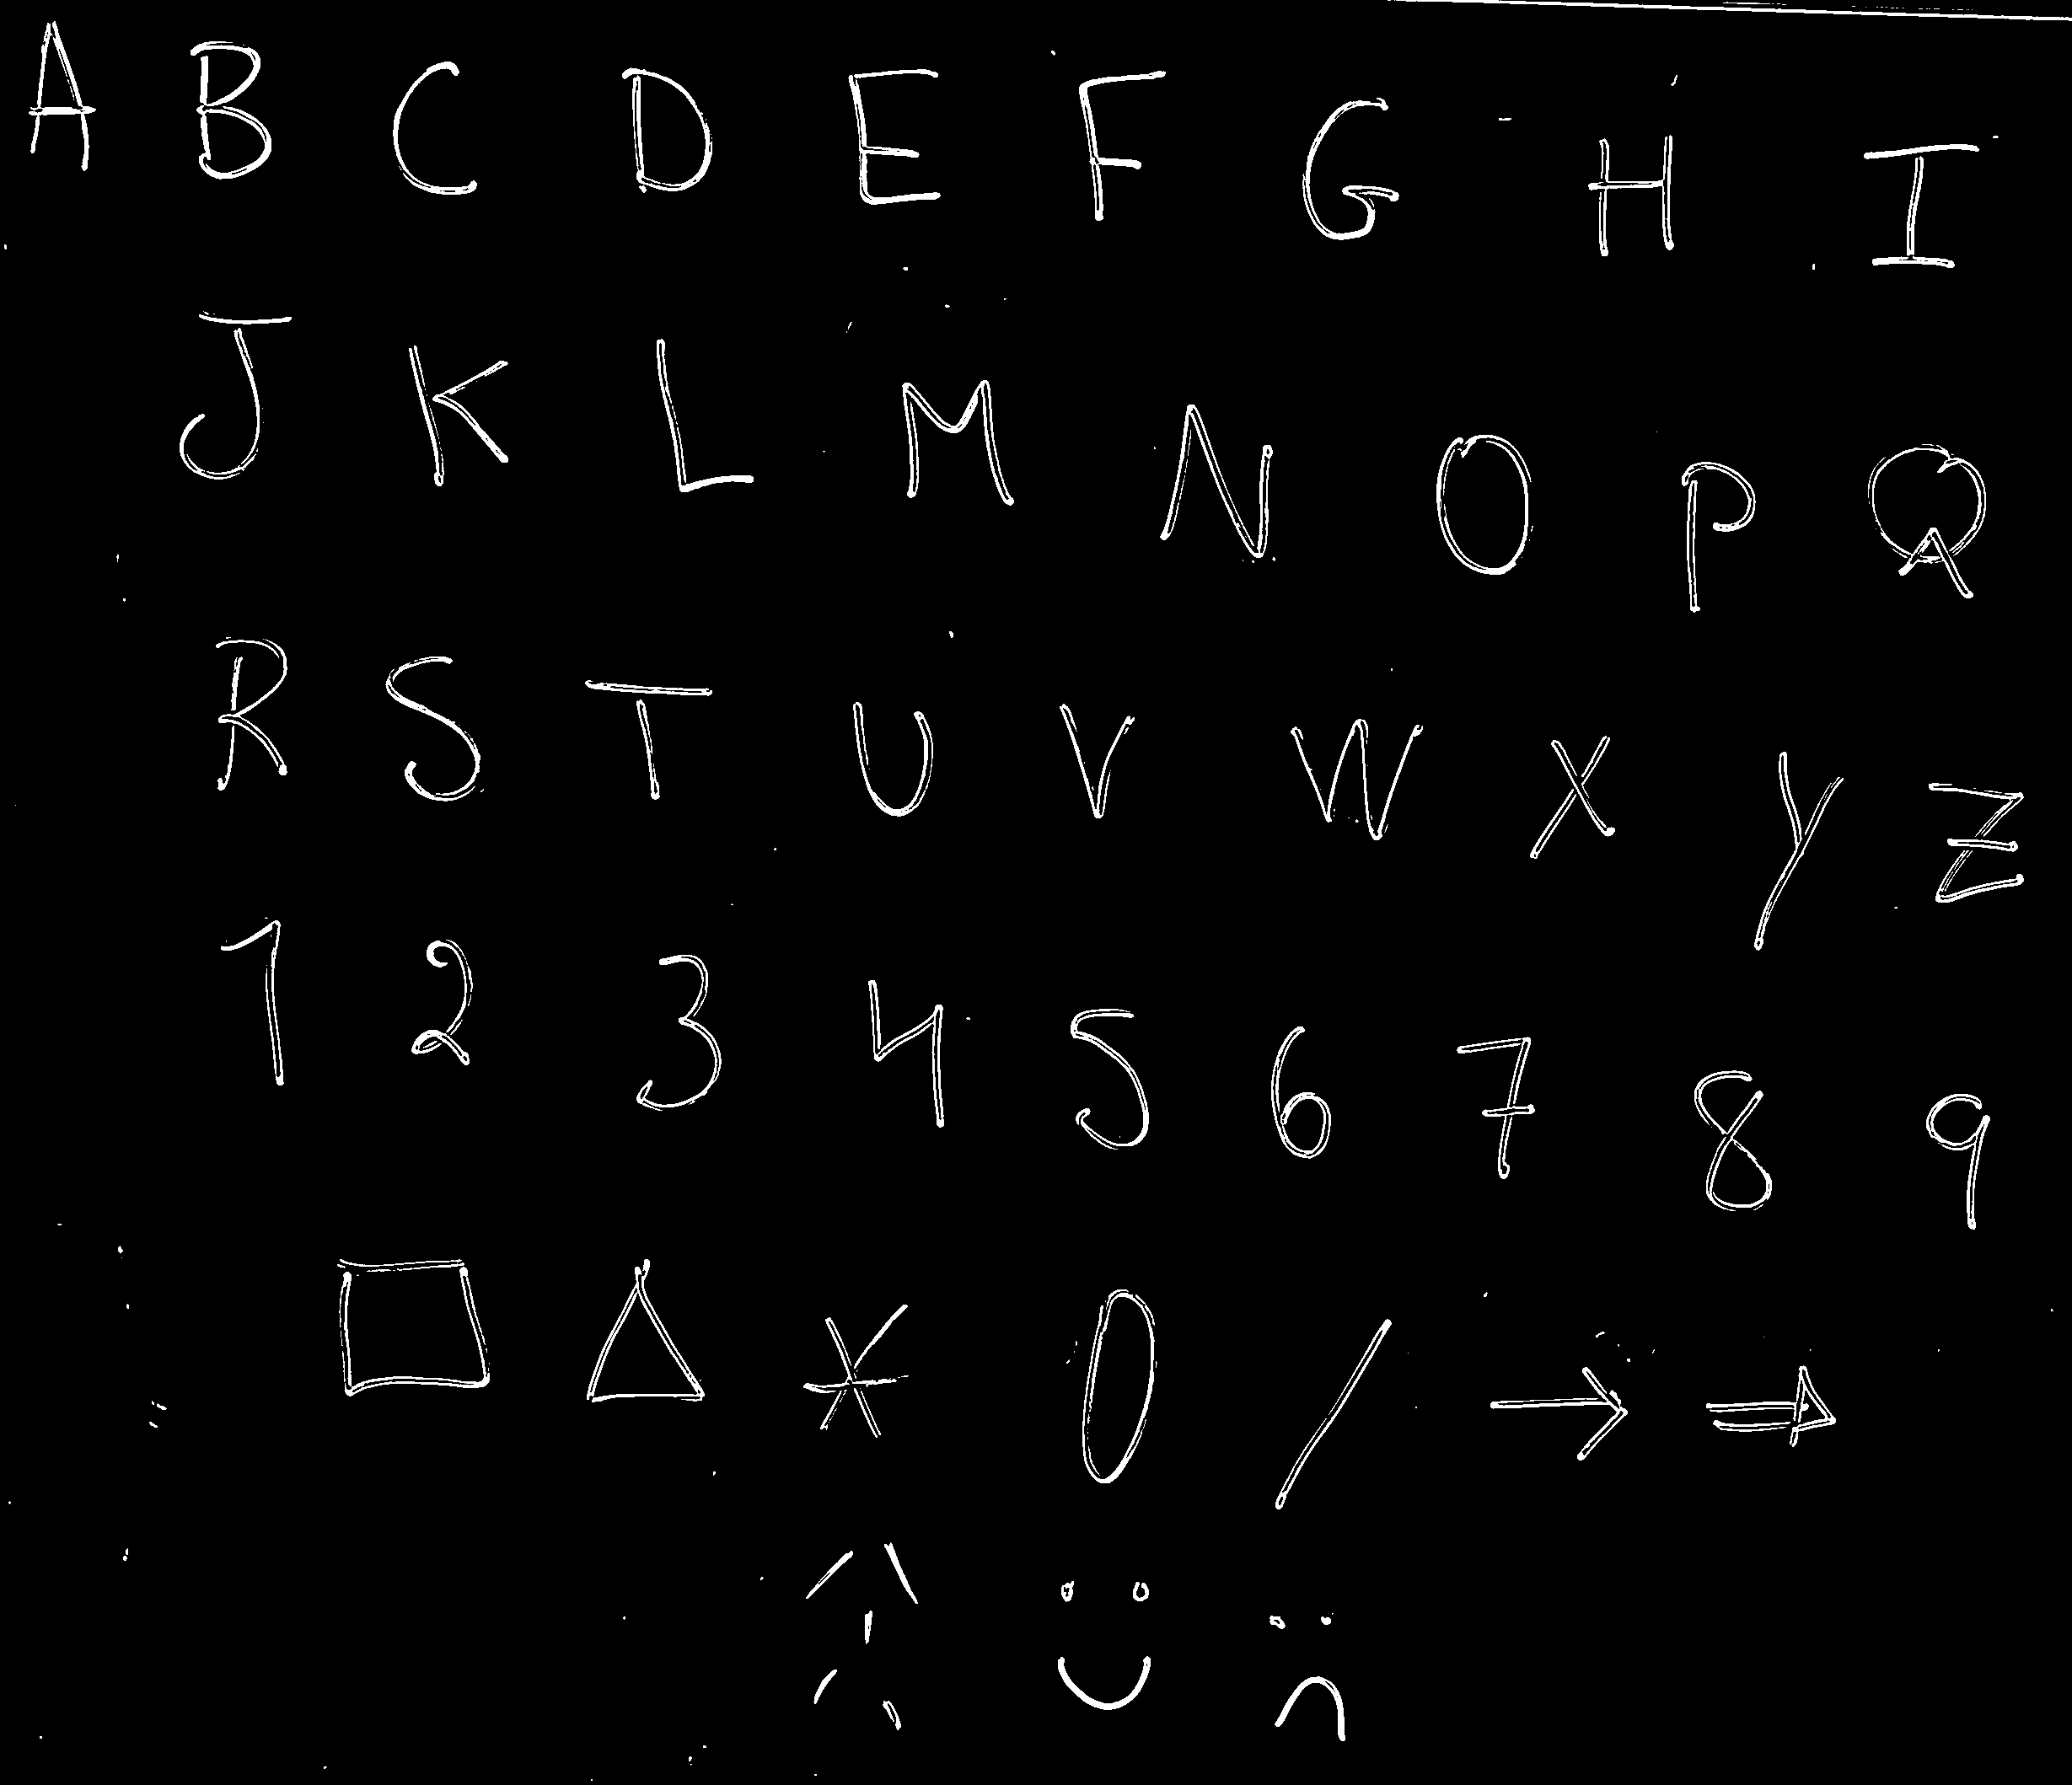 A B C D E F G H I
J K L M N O P Q
R S T U V W X Y Z
1 2 3 4 5 6 7 8 9
□ △ * 0 / → ⇒